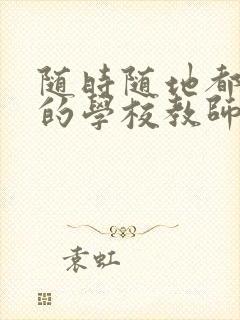 随時随地都
的學校教師
袁虹